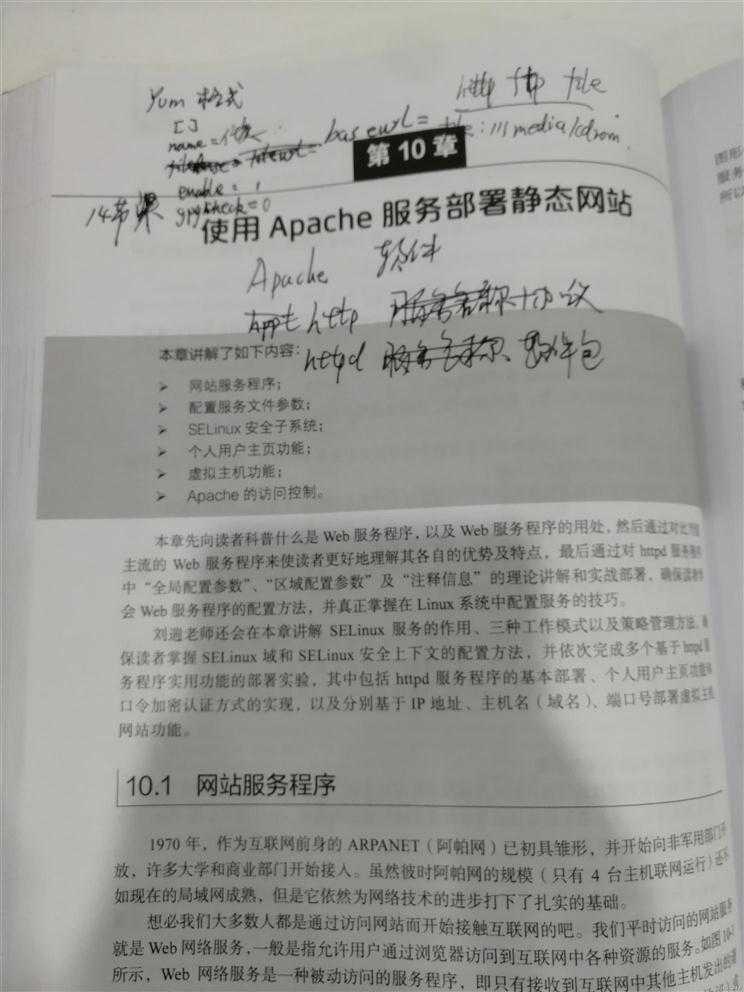 Yum 格式
[ ]
name=
baseurl=
http ftp file
file:///media/cdrom
enable=1
gpgcheck=0
14节课
第10章
使用 Apache 服务部署静态网站
Apache 软件
http 协议
httpd 软件包
本章讲解了如下内容：
➢ 网站服务程序；
➢ 配置服务文件参数；
➢ SELinux 安全子系统；
➢ 个人用户主页功能；
➢ 虚拟主机功能；
➢ Apache 的访问控制。
本章先向读者科普什么是 Web 服务程序，以及 Web 服务程序的用处，然后通过对比
主流的 Web 服务程序来使读者更好地理解其各自的优势及特点，最后通过对 httpd 服务
中“全局配置参数”、“区域配置参数”及“注释信息”的理论讲解和实战部署，确保读者
会 Web 服务程序的配置方法，并真正掌握在 Linux 系统中配置服务的技巧。
刘遄老师还会在本章讲解 SELinux 服务的作用、三种工作模式以及策略管理方法，确
保读者掌握 SELinux 域和 SELinux 安全上下文的配置方法，并依次完成多个基于 httpd 服
务程序实用功能的部署实验，其中包括 httpd 服务程序的基本部署、个人用户主页功能和
口令加密认证方式的实现，以及分别基于 IP 地址、主机名（域名）、端口号部署虚拟主机
网站功能。
10.1 网站服务程序
1970 年，作为互联网前身的 ARPANET（阿帕网）已初具雏形，并开始向非军用部门开
放，许多大学和商业部门开始接入。虽然彼时阿帕网的规模（只有 4 台主机联网运行）还不
如现在的局域网成熟，但是它依然为网络技术的进步打下了扎实的基础。
想必我们大多数人都是通过访问网站而开始接触互联网的吧。我们平时访问的网站服务
就是 Web 网络服务，一般是指允许用户通过浏览器访问到互联网中各种资源的服务。如图 10-1
所示，Web 网络服务是一种被动访问的服务程序，即只有接收到互联网中其他主机发出的请
图形
服务
所以